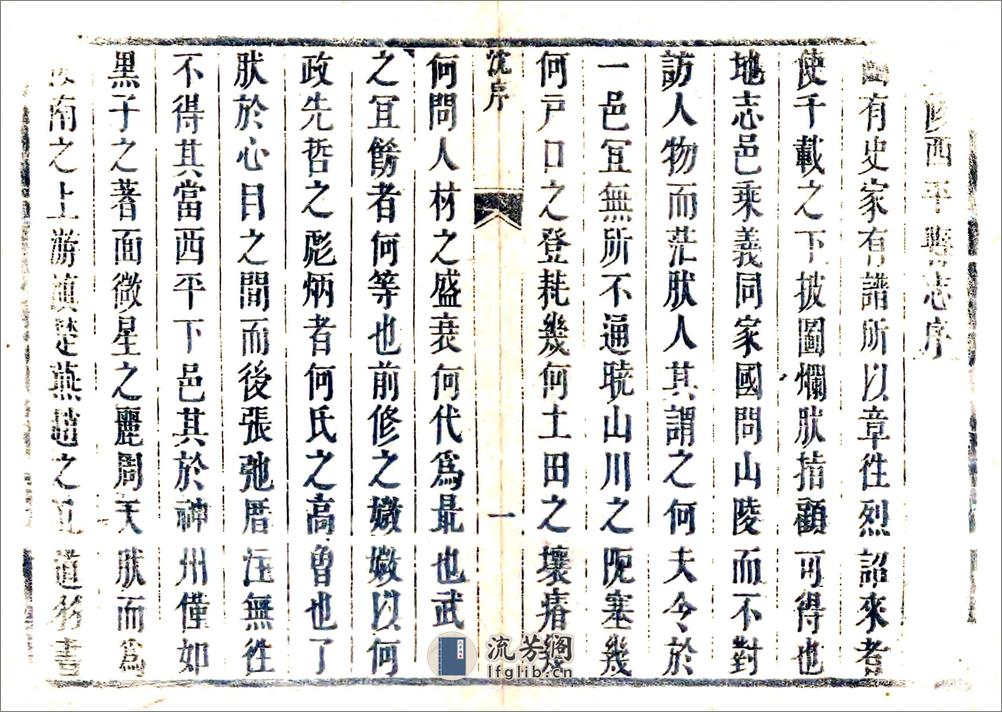 修西平縣志序
國有史家有譜所以章徃烈詔來者
使千載之下披圖爛肰指顧可得也
地志邑乘義同家國問山陵而不對
訪人物而茫肰人其謂之何夫令於
一邑冝無所不通曉山川之阨塞幾
何戸口之登耗幾何土田之壤瘠幾
沈序
一
何問人材之盛衰何代爲最也武
之冝餝者何等也前修之媺媺以何
政先哲之彪炳者何氏之高曾也了
肰於心目之間而後張弛厝注無徃
不得其當西平下邑其於神州僅如
黒子之著面微星之麗周天肰而爲
南之上游鎮楚燕趙之道
流芳阁
lfglib.cn